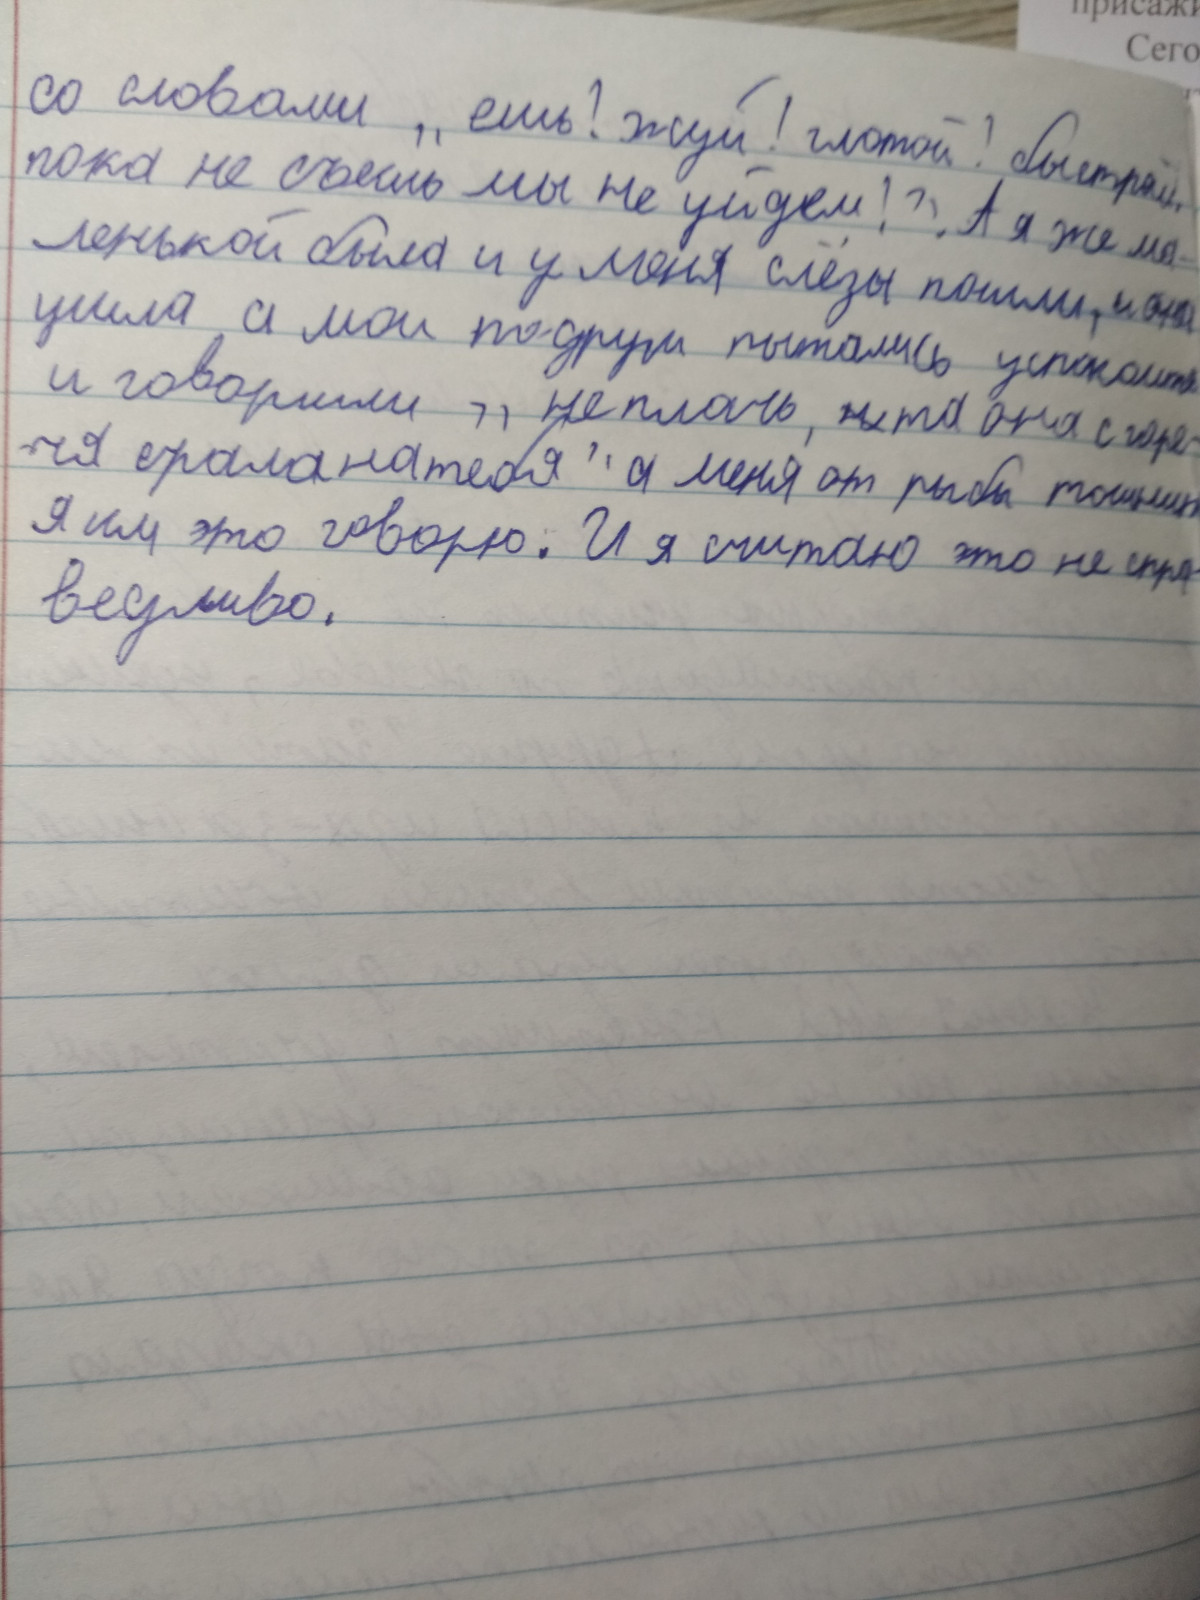 присажи
Сего
со словами ,, ешь! жуй! глотой! быстрей,
пока не съешь мы не уйдем!". А я же ма-
ленькой была и у меня слёзы пошли, и она
ушла а мои подруги пытались успокоить
и говорили ,, не плачь, она сгоре-
ча срала на тебя" а меня от рыбы тошнит
я им это говорю. И я считаю это не спра-
ведливо.